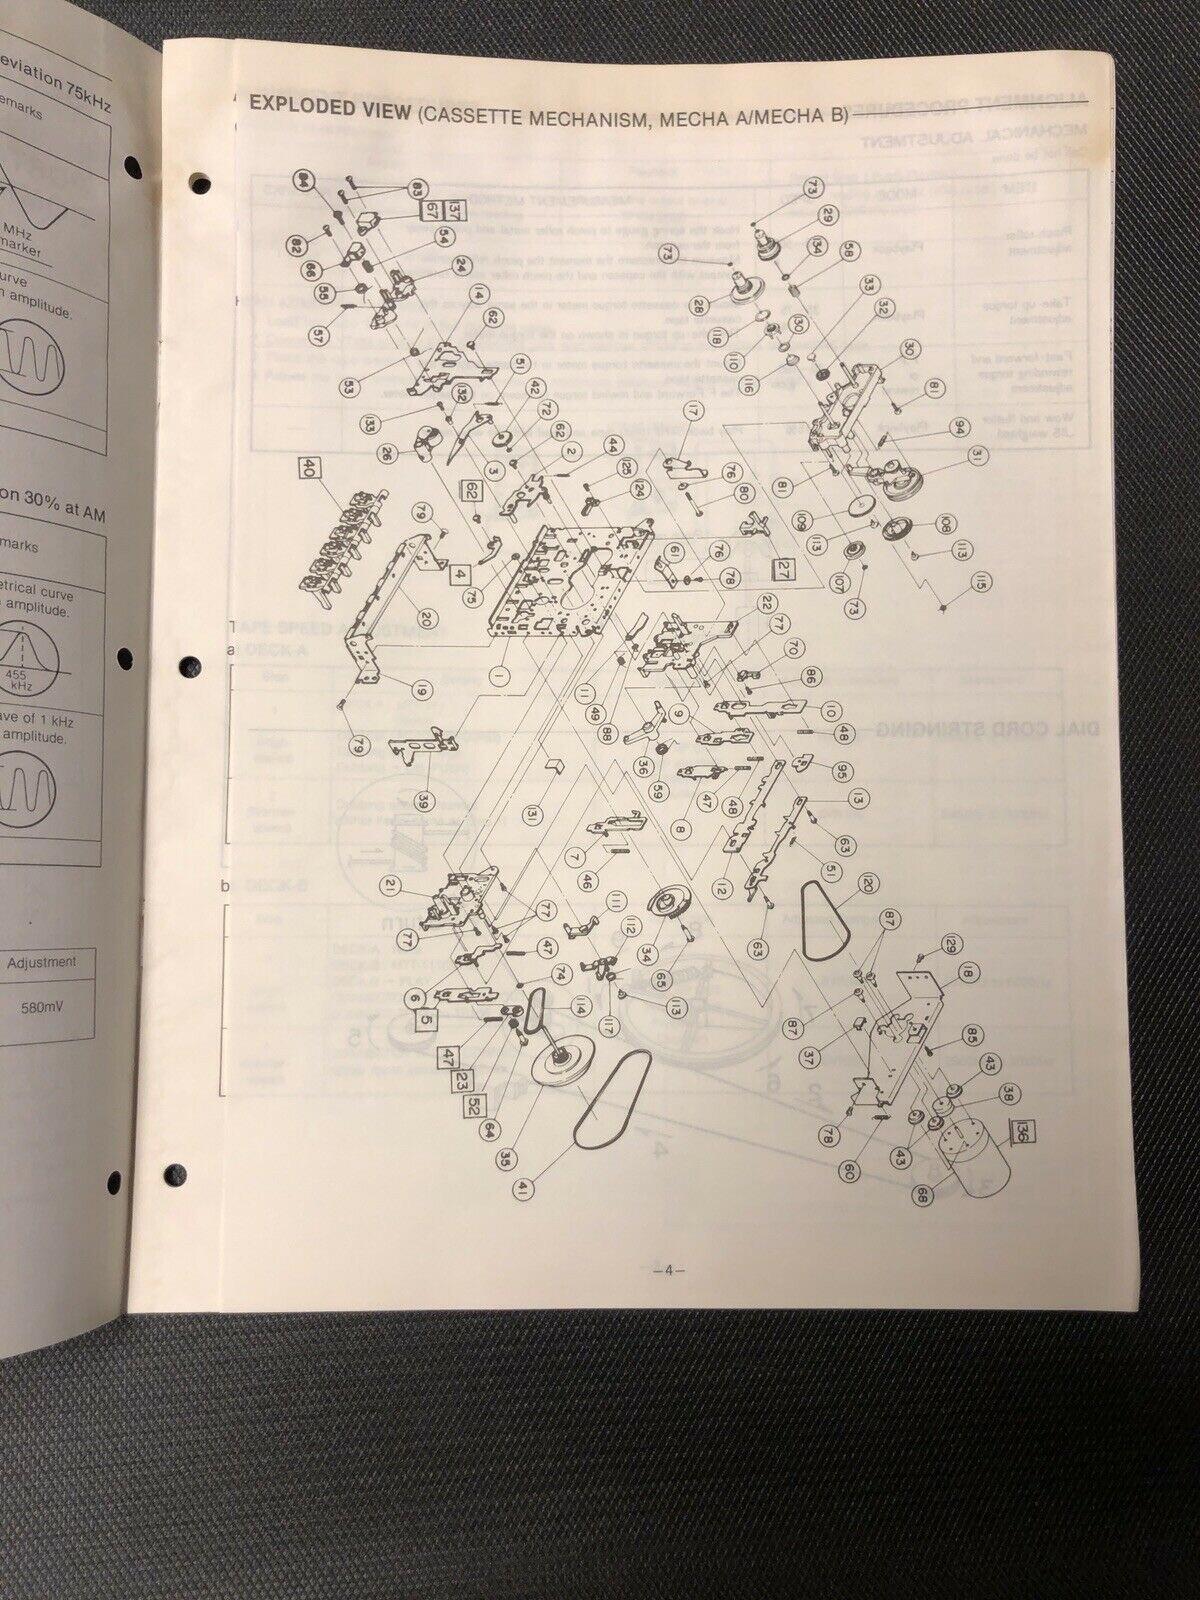 eviation 75kHz
emarks
MHz
marker
urve
n amplitude.
on 30% at AM
marks
etrical curve
amplitude.
455
kHz
ave of 1 kHz
amplitude.
Adjustment
580mV
EXPLODED VIEW (CASSETTE MECHANISM, MECHA A/MECHA B)
84
83
67
137
54
82
66
24
55
14
57
62
53
51
42
132
72
133
62
26
3
2
44
125
40
62
124
79
4
75
20
1
19
79
39
73
29
134
58
73
33
28
32
118
110
130
30
116
81
94
17
31
76
81
80
109
108
113
113
61
76
27
107
115
78
73
22
77
70
11
86
49
88
9
10
36
48
59
95
47
13
48
8
131
63
7
12
51
46
120
21
111
63
77
112
34
87
77
47
65
129
18
6
74
113
5
114
117
87
37
85
47
23
52
43
38
64
78
43
136
35
60
68
41
b
a
—4—